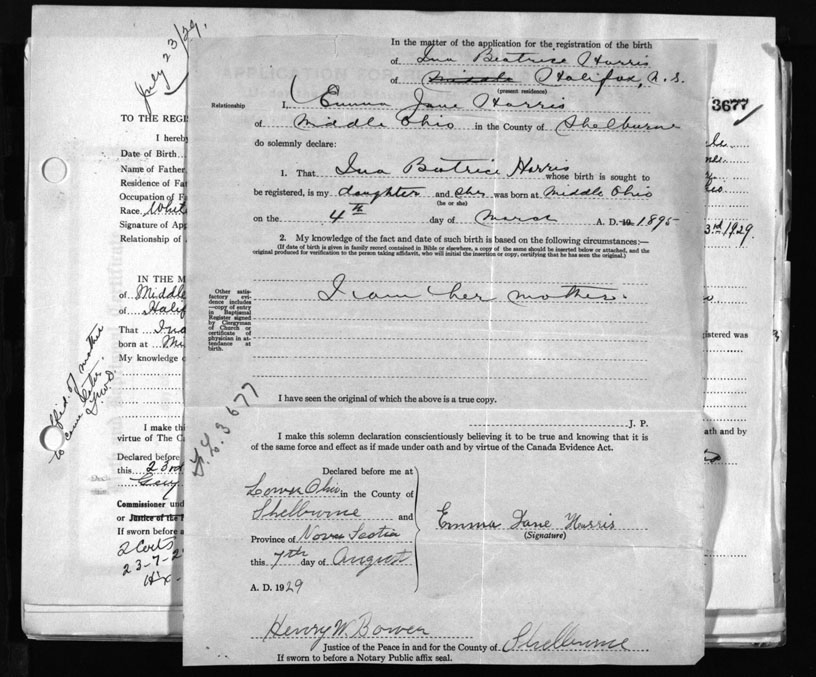 July 23/29.
In the matter of the application for the registration of the birth
of Ina Beatrice Harris
of Middle Halifax, N.S.
(present residence)
3677
Relationship
I, Emma Jane Harris
of Middle Ohio in the County of Shelburne
do solemnly declare:
1. That Ina Beatrice Harris whose birth is sought to
be registered, is my daughter and she was born at Middle Ohio
(he or she)
on the 4th day of March A. D. 19 1895
2. My knowledge of the fact and date of such birth is based on the following circumstances:—
(If date of birth is given in family record contained in Bible or elsewhere, a copy of the same should be inserted below or attached, and the
original produced for verification to the person taking affidavit, who will initial the insertion or copy, certifying that he has seen the original.)
I am her mother.
Other satis-
factory evi-
dence includes
—copy of entry
in Baptismal
Register signed
by Clergyman
of Church or
certificate of
physician in at-
tendance at
birth.
I have seen the original of which the above is a true copy.
J. P.
I make this solemn declaration conscientiously believing it to be true and knowing that it is
of the same force and effect as if made under oath and by virtue of the Canada Evidence Act.
Declared before me at
Lower Ohio in the County of
Shelburne and
Province of Nova Scotia
this 7th day of August
A. D. 1929
Emma Jane Harris
(Signature)
Henry W. Bower
Justice of the Peace in and for the County of Shelburne
If sworn to before a Notary Public affix seal.
3677
TO THE REGI
I hereb
Date of Birth
Name of Father
Residence of Fa
Occupation of F
Race White
Signature of App
Relationship of
IN THE M
of Middle
of Halif
That Ina
born at Mi
My knowledge o
Affid. of mother
to come later.
I make thi
virtue of The C
Declared before
this 23rd
Commissioner und
or Justice of the
If sworn before a
2 Certs
23-7-2
3rd 1929.
gistered was
ath and by